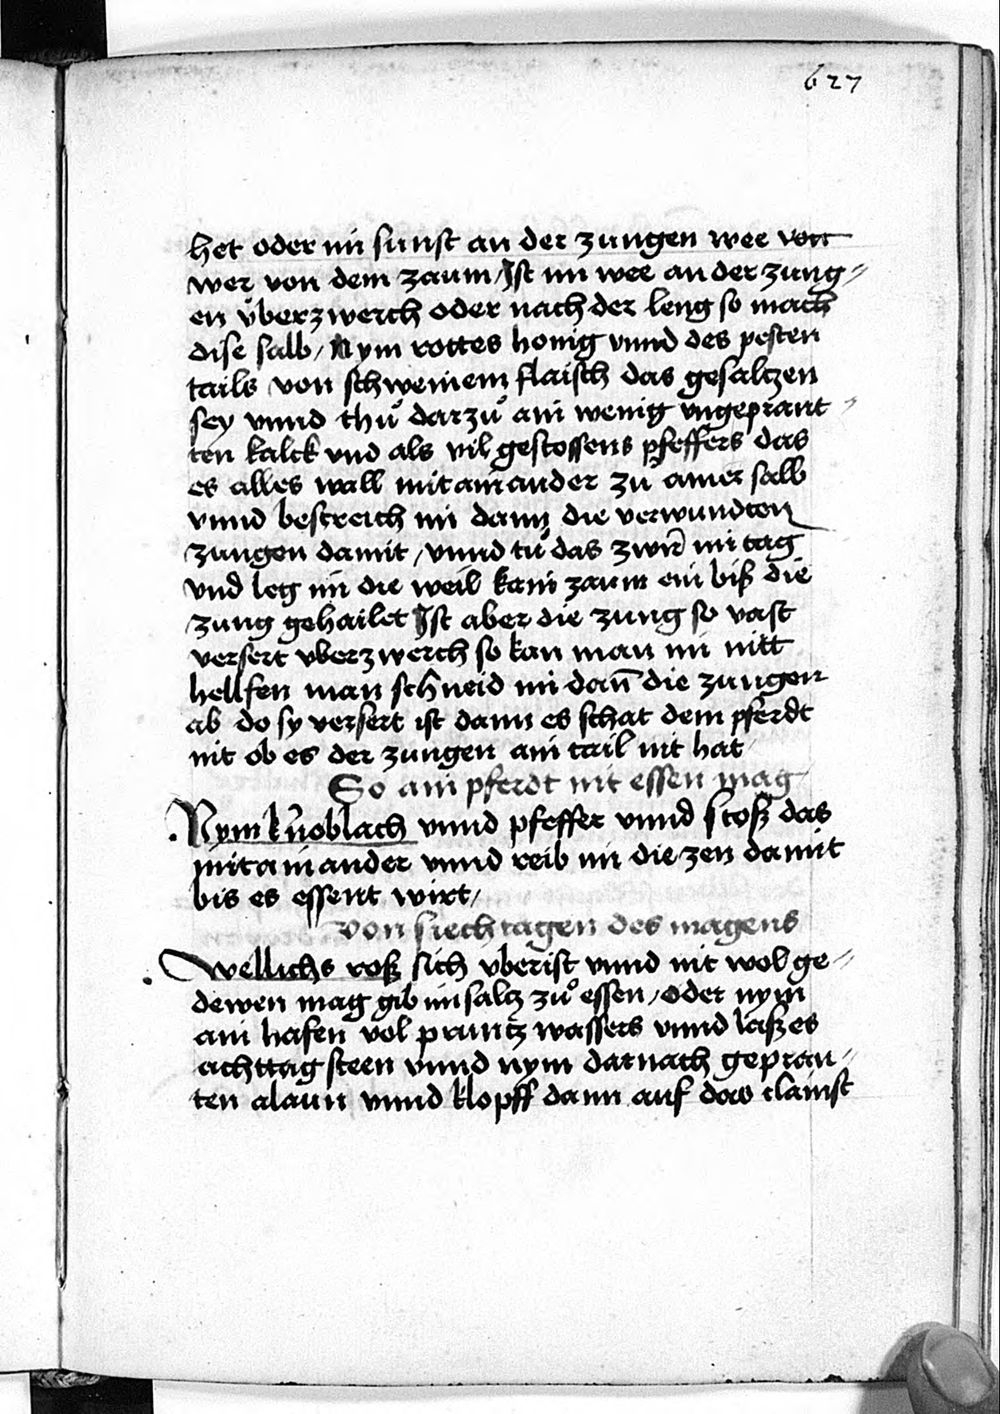 627
het oder im sunst an der zungen wee von
wer von dem zaum / Ist im wee an der zung=
en v̈berzwerch oder nach der leng so mach
dise salb / Nym rottes honig vnnd des pesten
tails von schweinem flaisch das gesaltzen
sey vnnd thuͦ darzuͦ ain wenig vngeprant=
ten kalck vnd als vil gestossens pfeffers das
es alles wall mitainander zu ainer salb
vnnd bestreich im dann die verwundten
zungen damit / vnnd tuͦ das zwir̄ im tag
vnd leg im die weil kain zaum ein biß die
zung gehailet Ist aber die zung so vast
versert vberzwerch so kan man im nitt
hellfen man schneid im dan̄ die zungen
ab do sy versert ist dann es schat dem pferdt
nit ob es der zungen ain tail nit hat
So ain pferdt nit essen mag
Nym knoblach vnnd pfeffer vnnd stoß das
mitainander vnnd reib im die zen damit
bis es essent wirt /
von siechtagen des magens
Wellichs roß sich vberist vnnd nit wol ge=
dewen mag gib im saltz zuͦ essen / oder nym
ain hafen vol pruntz wassers vnnd laß es
achttag steen vnnd nym darnach gepran=
ten alaun vnnd klopff dann auf das clainst